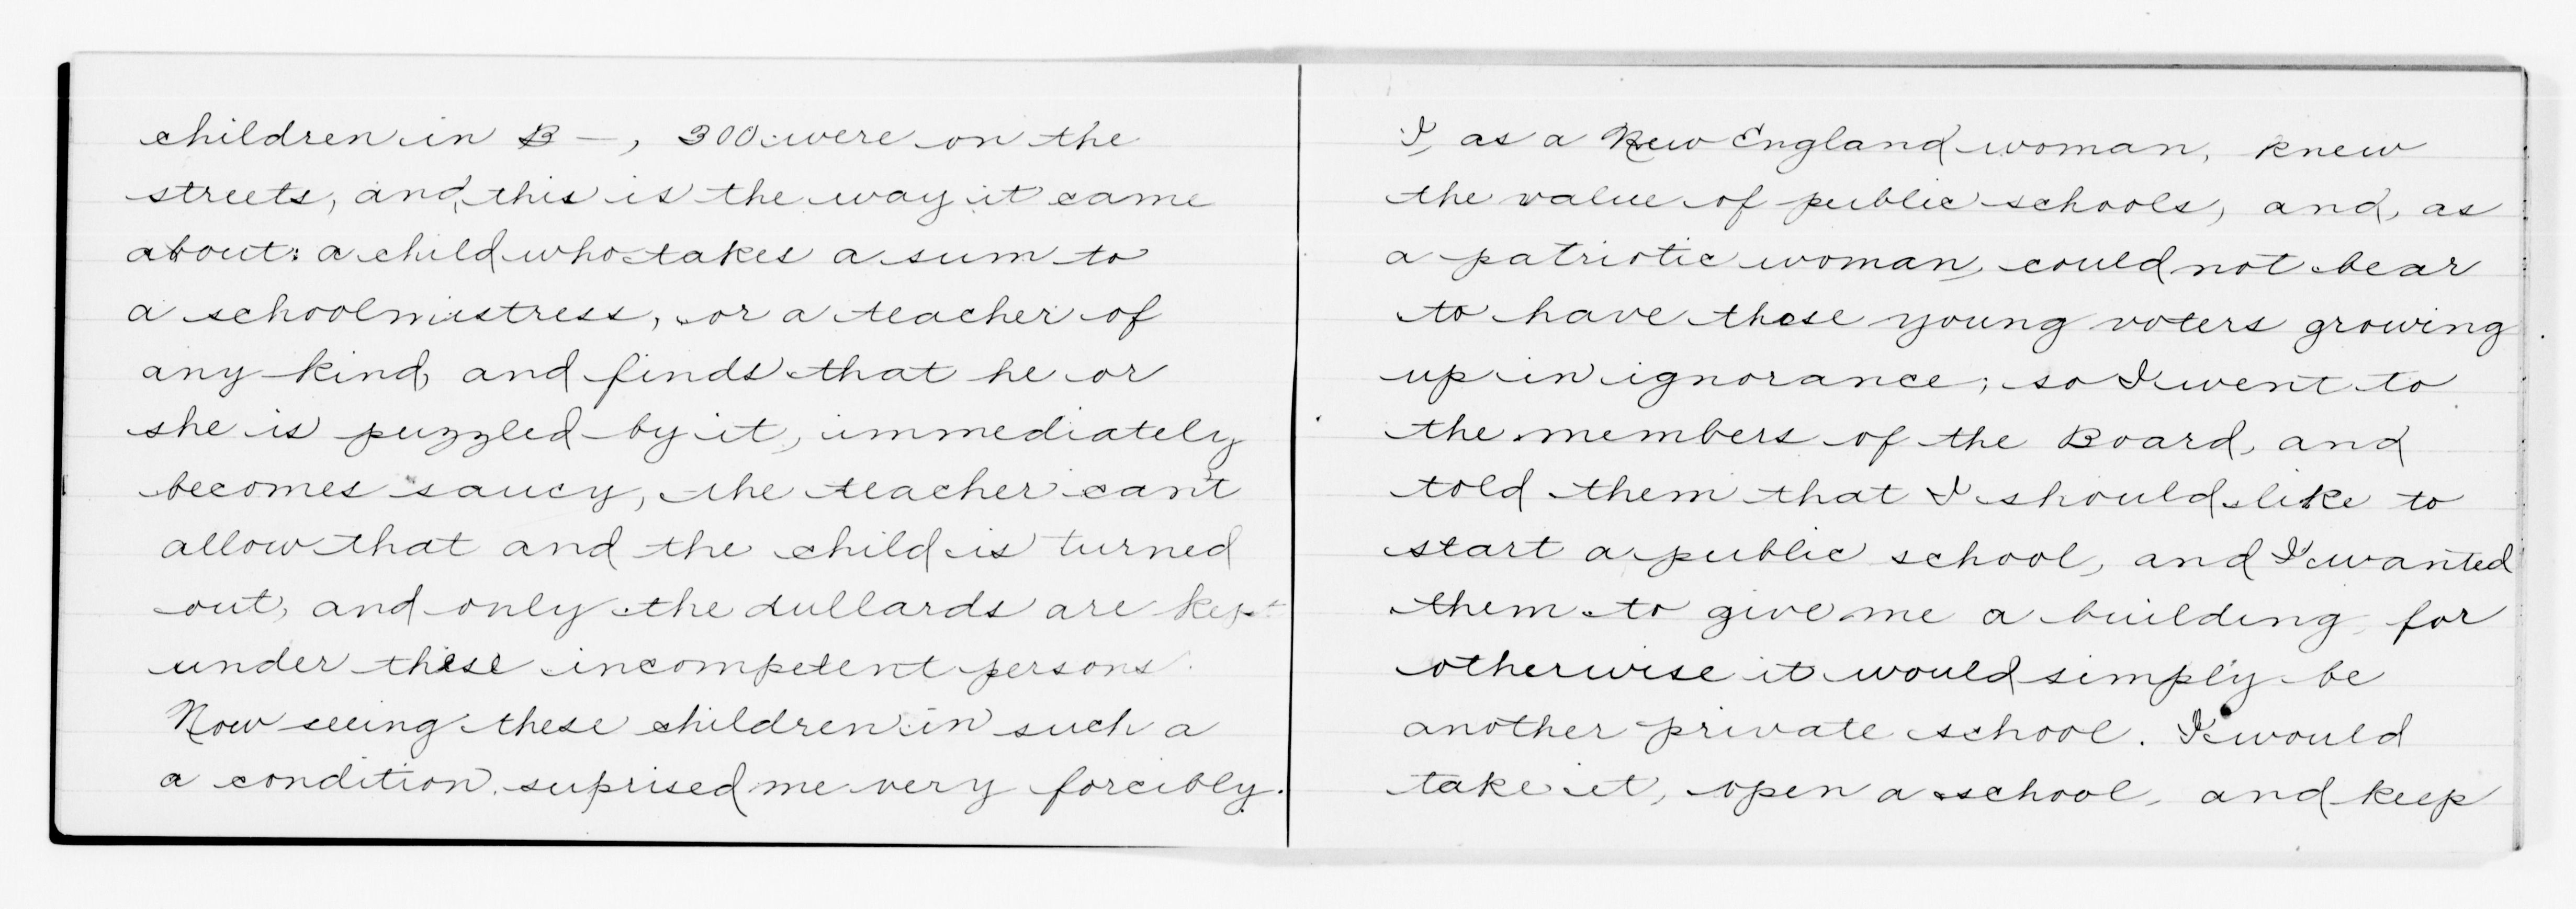 children in B—, 300 were on the
streets, and, this is the way it came
about: a child who takes a sum to
a schoolmistress, or a teacher of
any kind, and finds that he or
she is puzzled by it, immediately
becomes saucy, the teacher can't
allow that and the child is turned
out, and only the dullards are kept
under these incompetent persons.
Now seeing these children in such a
a condition suprised me very forcibly.
I, as a New England woman, knew
the value of public schools, and, as
a patriotic woman, could not bear
to have these young voters growing
up in ignorance; so I went to
the members of the Board, and
told them that I should like to
start a public school, and I wanted
them to give me a building for
otherwise it would simply be
another private school. I would
take it, open a school, and keep